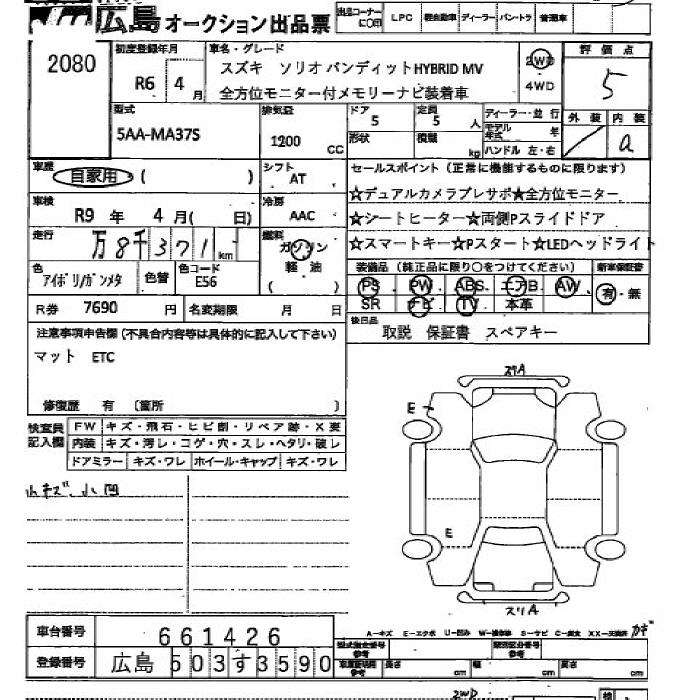 広島 オークション出品票
出品コーナーに〇印 LPC 軽自動車 ディーラー パントラ 普通車
2080
初度登録年月
R6 4 月
車名・グレード
スズキ ソリオバンディットHYBRID MV
全方位モニター付メモリーナビ装着車
2WD
4WD
評価点
5
型式
5AA-MA37S
排気量
1200 CC
ドア
5
定員
5 人
形状
積載
kg
ディーラー・並行
モデル年式 年
ハンドル 左・右
外装
内装
a
車歴
自家用 ( )
シフト
AT
車検
R9 年 4 月( 日)
冷房
AAC
走行
万8千371 km
燃料
ガソリン
軽・油
( )
セールスポイント (正常に機能するものに限ります)
☆デュアルカメラブレサポ☆全方位モニター
☆シートヒーター☆両側Pスライドドア
☆スマートキー☆Pスタート☆LEDヘッドライト
色
アイボリ/ガンメタ
色替
色コード
E56
装備品 (純正品に限り〇をつけてください)
PS PW ABS エアB AW
SR ナビ TV 本革
新車保証書
有・無
R券 7690 円
名変期限 月 日
後日品
取説 保証書 スペアキー
注意事項申告欄 (不具合内容等は具体的に記入して下さい)
マット ETC
修復歴 有 (箇所 )
検査員記入欄
FW キズ・飛石・ヒビ割・リペア跡・X要
内装 キズ・汚レ・コゲ・穴・スレ・ヘタリ・破レ
ドアミラー キズ・ワレ ホイール・キャップ キズ・ワレ
小キズ、小凹
スリA
E
E
スリA
車台番号
661426
登録番号
広島 503す3590
A-キズ E-エクボ U-凹ミ S-サビ C-腐食
長さ cm 幅 cm 高さ cm
2WD